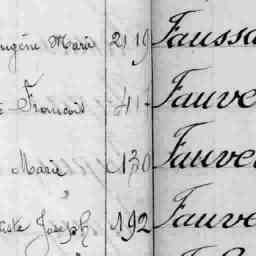 Eugène Marie 2119 Faussa
François 417 Fauve
Marie 130 Fauve
" 
Joseph 192 Fauve
"